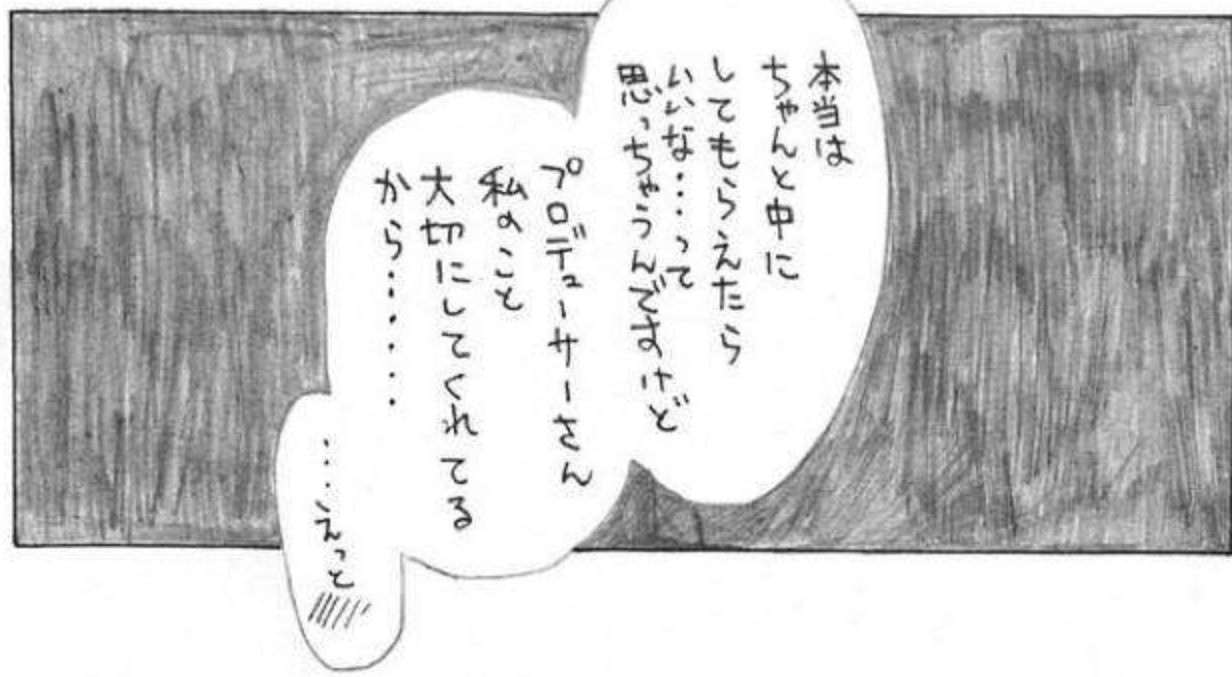 本当は
ちゃんと中に
してもらえたら
いいな・・・って
思っちゃうんですけど
プロデューサーさん
私のこと
大切にしてくれてる
から・・・・・・・
・・・えっと